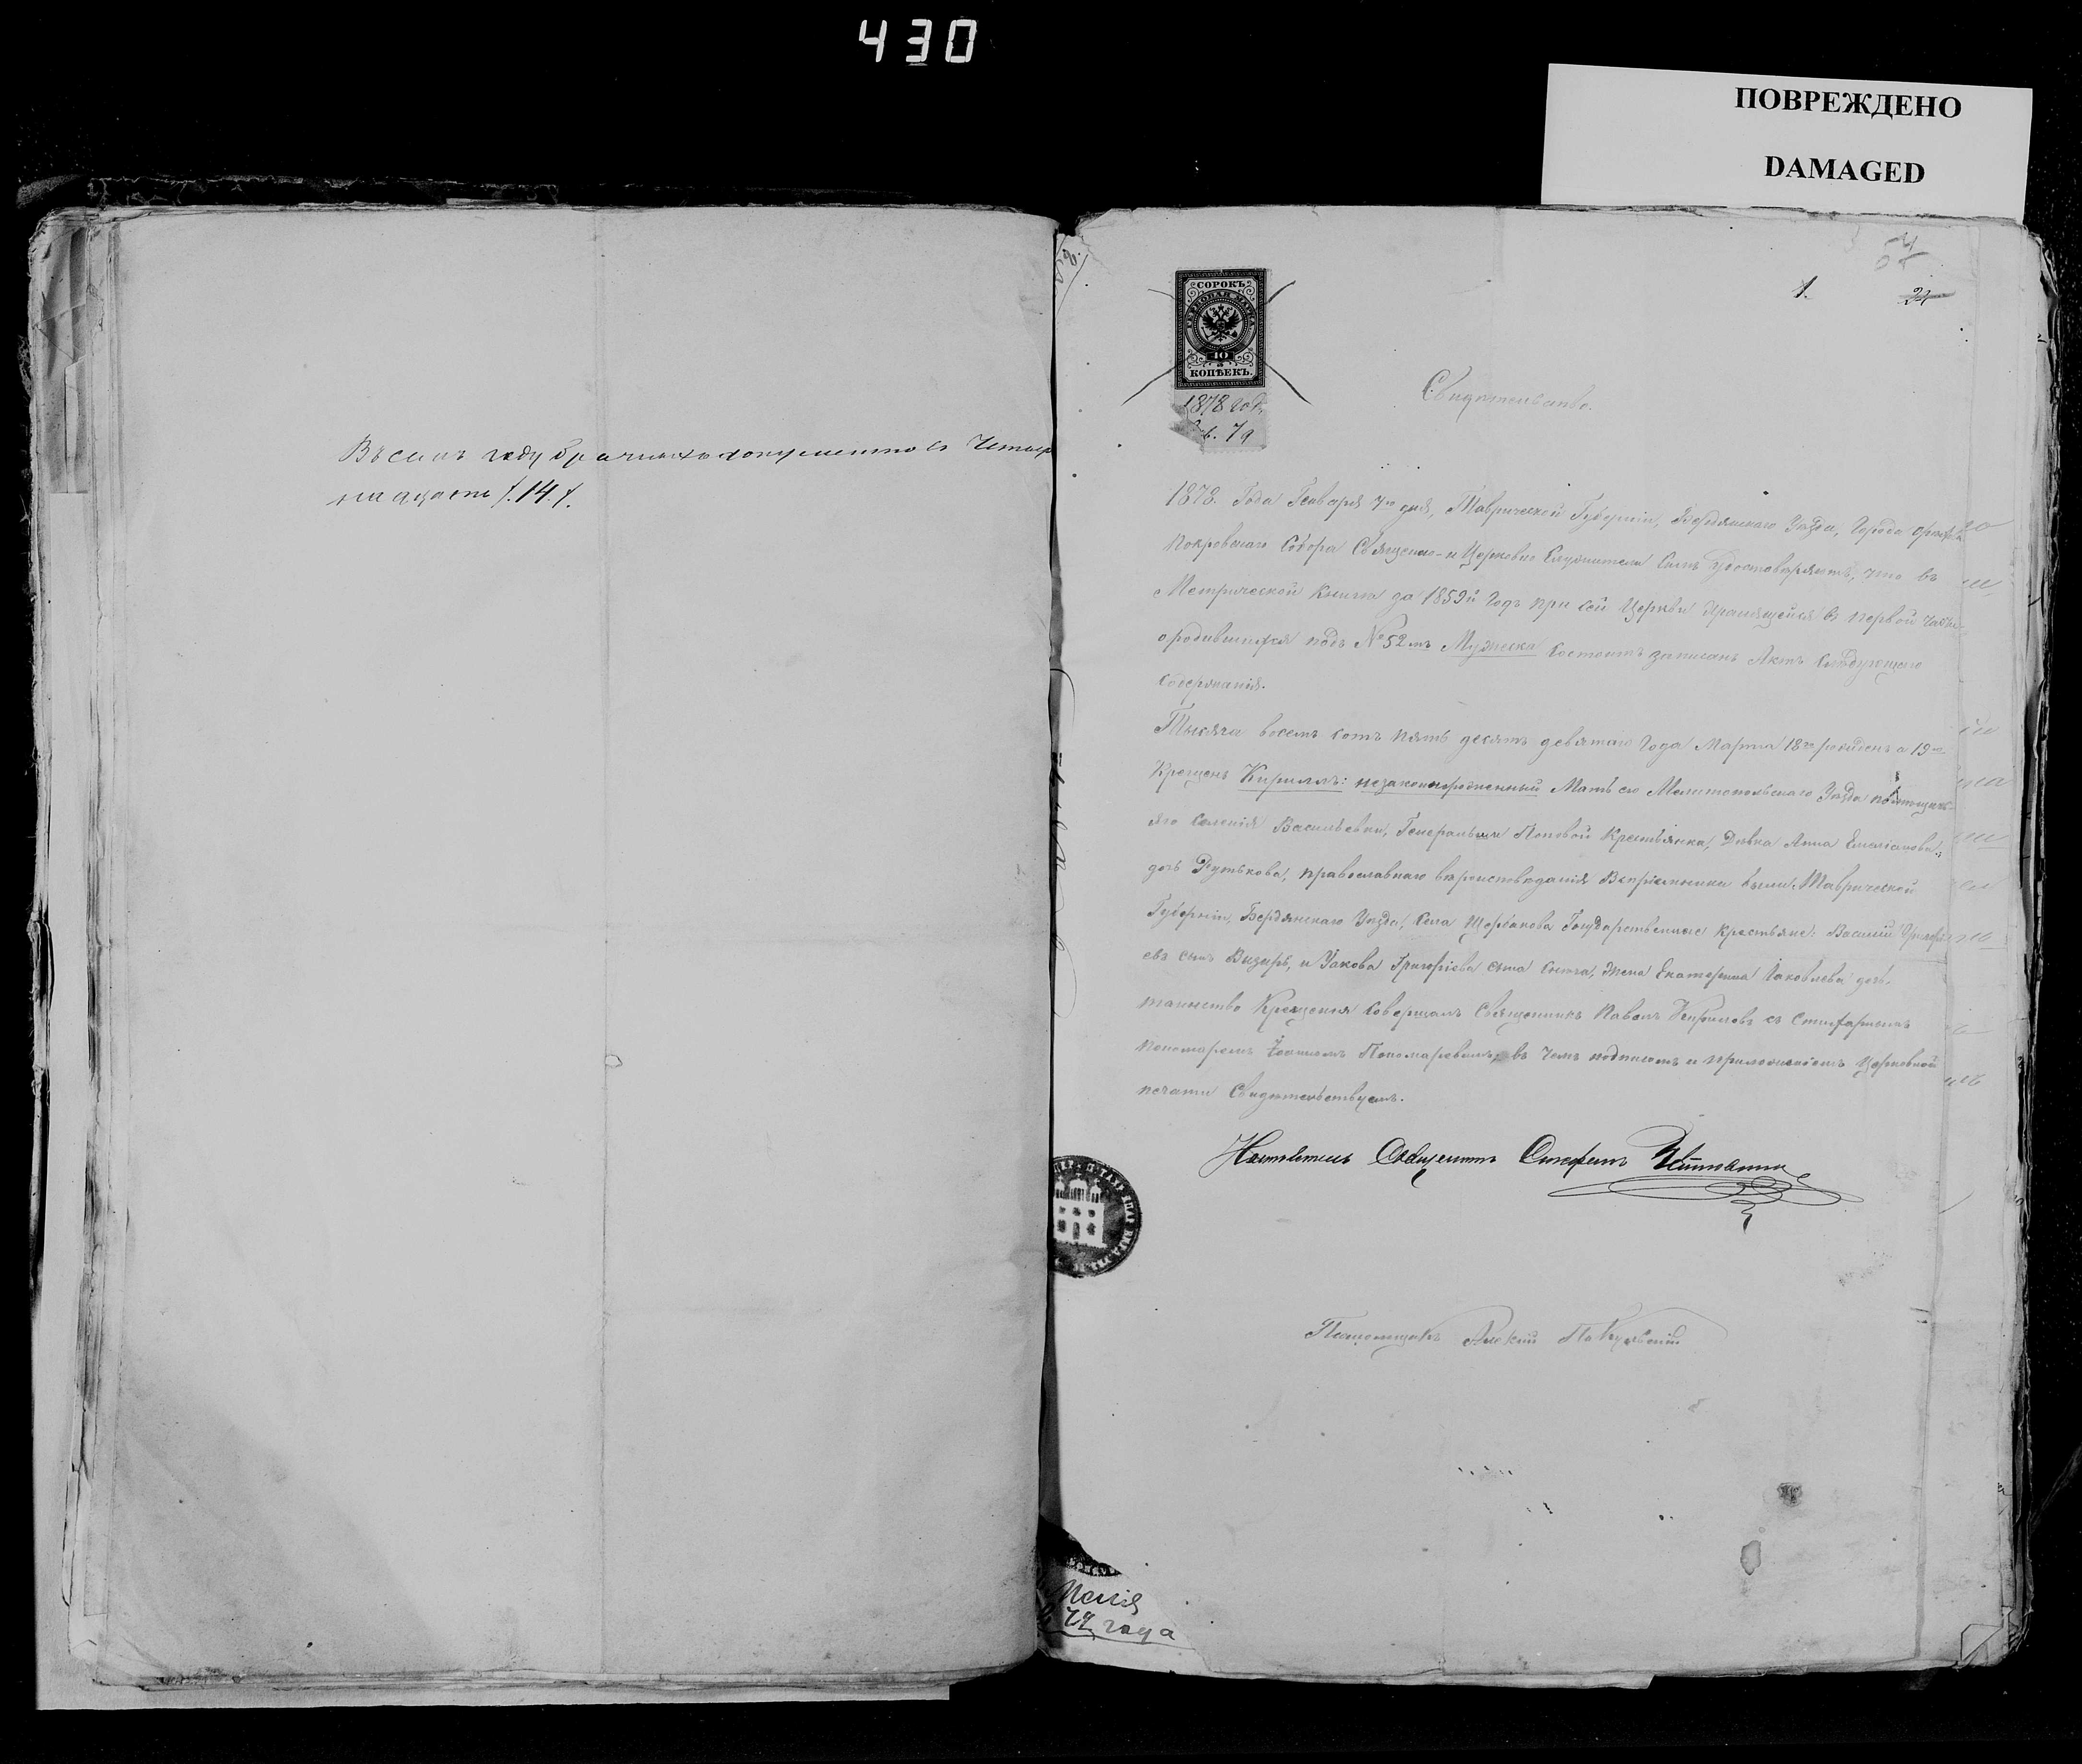 430
ПОВРЕЖДЕНО
DAMAGED
Въ семъ году брачныхъ документовъ Четыр
надцать /.14./.
1. 21
СОРОКЪ
ГЕРБОВАЯ МАРКА
40
КОПѢЕКЪ.
1878 год.
Янв. 7 д
Свидѣтельство.
1878. Года Генваря 7го дня, Таврической Губерніи, Бердянскаго Уѣзда, Города Орѣхова
Покровскаго Собора Священно-и Церковно Служители Симъ Удостовѣряютъ, что въ
Метрической Книгѣ за 1859й Годъ при сей Церкви Хранящейся въ первой части
о родившихся подъ № 52мъ Мужеска состоитъ записанъ Актъ Слѣдующаго
Содержанія.
Тысяча восемь сотъ пять десятъ девятаго Года Марта 18го рожденъ а 19го
Крещенъ Кириллъ: незаконнорожденный Мать его Мелитопольскаго Уѣзда помѣщичь-
яго Селенія Васильевки, Генеральши Поповой Крестьянка, Дѣвка Анна Емельянова
дочь Рутькова, православнаго вѣроисповѣданія Воспріемники были: Таврической
Губерніи, Бердянскаго Уѣзда, Села Щербакова Государственные Крестьяне: Василій Григорі
евъ сынъ Визирь, и Иакова Григоріева сына Сыча, Жена Екатерина Іаковлева дочь.
таинство Крещенія Совершалъ Священникъ Павелъ Кириловъ съ Стихарнымъ
Пономаремъ Іоанномъ Пономаревымъ; въ чемъ подписомъ и приложеніемъ Церковной
печати Свидѣтельствуемъ.
Настоятель Священникъ Стефанъ
Псаломщикъ
года